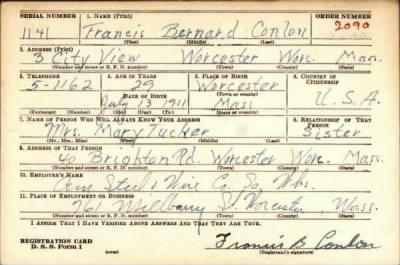 SERIAL NUMBER 1. NAME (Print) ORDER NUMBER
1141 Francis Bernard Conlon 2090
(First) (Middle) (Last)
2. ADDRESS (Print)
3 City View Worcester Worc. Mass.
(Number and street or R. F. D. number) (Town) (County) (State)
3. TELEPHONE 4. AGE IN YEARS 5. PLACE OF BIRTH 6. COUNTRY OF CITIZENSHIP
5-1162 29 Worcester
DATE OF BIRTH (Town or county)
July 13 1911 Mass U.S.A.
(Exchange) (Number) (Mo.) (Day) (Yr.) (State or country)
7. NAME OF PERSON WHO WILL ALWAYS KNOW YOUR ADDRESS 8. RELATIONSHIP OF THAT PERSON
Mrs. Mary Tucker Sister
(Mr., Mrs., Miss) (First) (Middle) (Last)
9. ADDRESS OF THAT PERSON
Brighton Rd. Worcester Worc. Mass.
(Number and street or R. F. D. number) (Town) (County) (State)
10. EMPLOYER'S NAME
Am. Steel & Wire Co. So. Wks.
11. PLACE OF EMPLOYMENT OR BUSINESS
767 Millbury St. Worcester, Mass.
(Number and street or R. F. D. number) (Town) (County) (State)
I AFFIRM THAT I HAVE VERIFIED ABOVE ANSWERS AND THAT THEY ARE TRUE.
REGISTRATION CARD
D. S. S. Form 1
Francis B Conlon
(Registrant's signature)